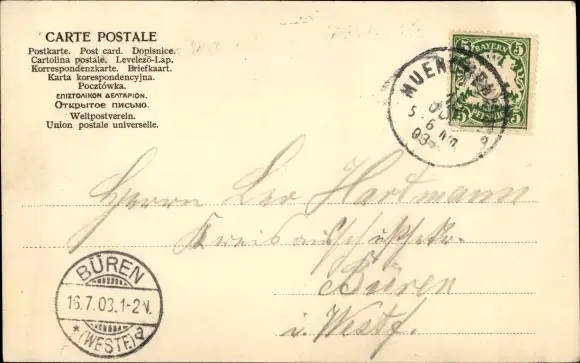 CARTE POSTALE
Postkarte. Post card. Dopisnice.
Cartolina postale. Levelező-Lap.
Korrespondenzkarte. Briefkaart.
Karta korespondencyjna.
Pocztówka.
ΕΠΙΣΤΟΛΙΚΟΝ ΔΕΛΤΑΡΙΟΝ.
Открытое письмо.
Weltpostverein.
Union postale universelle.
5 BAYERN 5
PFENNIG
MUENCHEN
5-6 Nm.
03
Herrn Leo Hartmann
Kreisausschußsekr.
Büren
i. Westf.
BÜREN
16.7.03.1-2N.
* (WESTF.) a